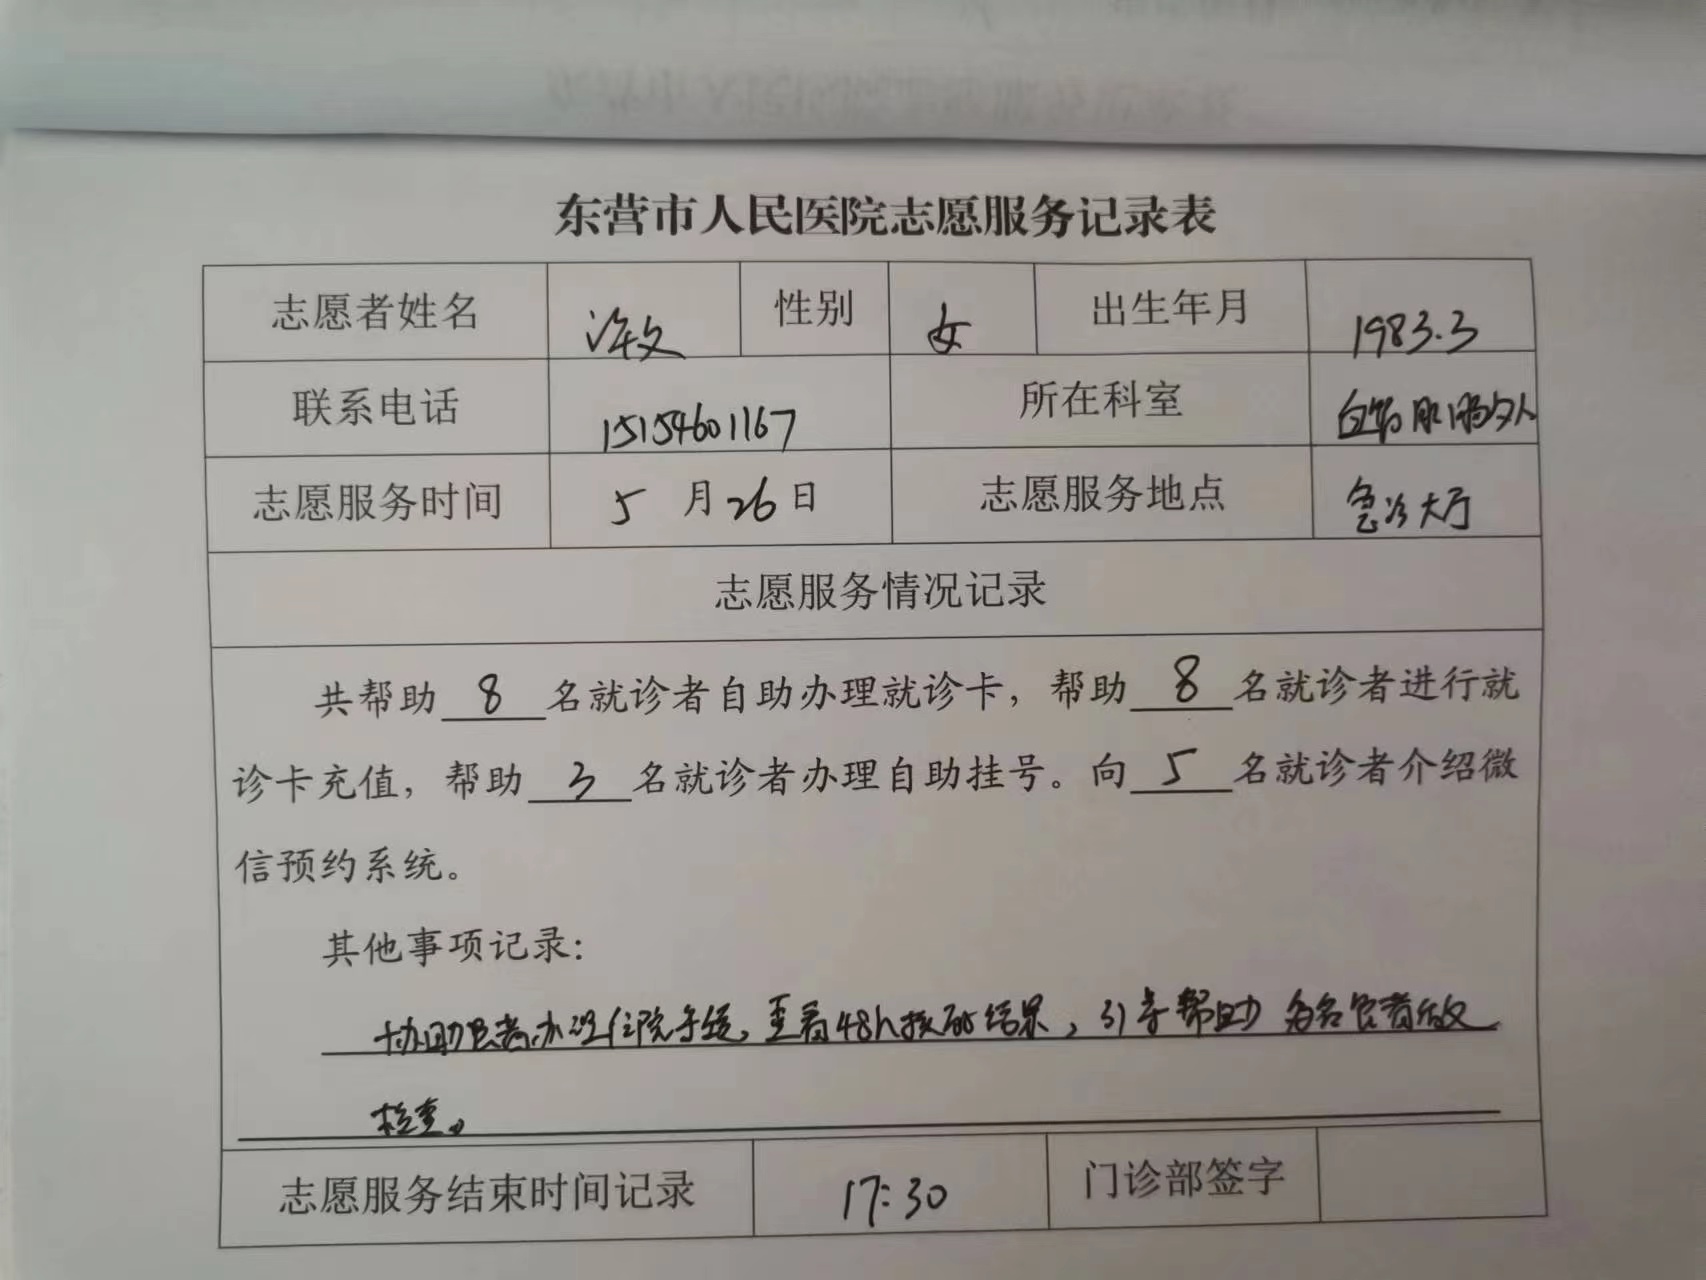 东营市人民医院志愿服务记录表
志愿者姓名 许文 性别 女 出生年月 1983.3
联系电话 15154601167 所在科室
志愿服务时间 5 月 26 日 志愿服务地点 急诊大厅
志愿服务情况记录
共帮助 8 名就诊者自助办理就诊卡，帮助 8 名就诊者进行就
诊卡充值，帮助 3 名就诊者办理自助挂号。向 5 名就诊者介绍微
信预约系统。
其他事项记录：
协助患者办理住院手续，查看48h核酸结果，引导帮助 多名患者做
检查。
志愿服务结束时间记录 17:30 门诊部签字